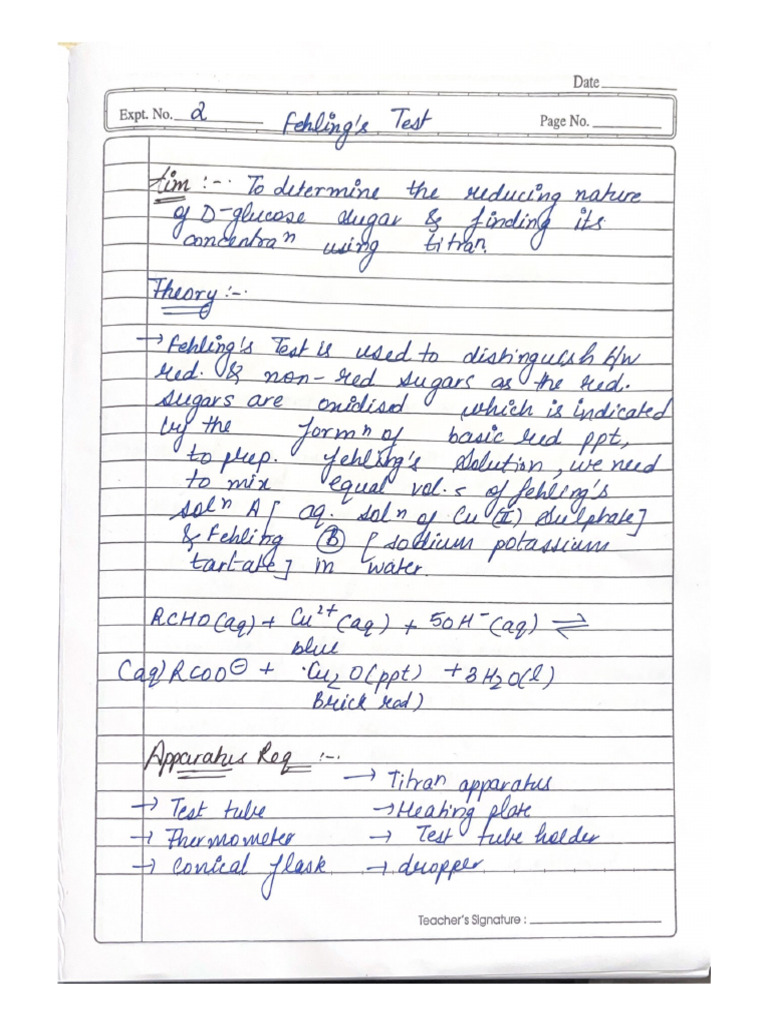 Date
Expt. No. 2 Fehling's Test Page No.
Aim :-. To determine the reducing nature
of D-glucose sugar & finding its
concentraⁿ using titran.
Theory :-.
→ Fehling's Test is used to distinguish b/w
red. & non-red sugars as the red.
sugars are oxidised which is indicated
by the formⁿ of basic red ppt,
to prep. fehling's solution, we need
to mix equal vol.s of fehling's
solⁿ A [ aq. solⁿ of Cu (II) sulphate]
& Fehling (B) [ sodium potassium
tartate] in water.
RCHO(aq) + Cu²⁺(aq) + 5OH⁻(aq) ⇌
blue
(aq) RCOO⊖ + Cu₂O(ppt) + 3H₂O(l)
Brick red)
Apparatus Req :-.
→ Titran apparatus
→ Test tube → Heating plate
→ Thermometer → Test tube holder
→ Conical flask → dropper
Teacher's Signature :